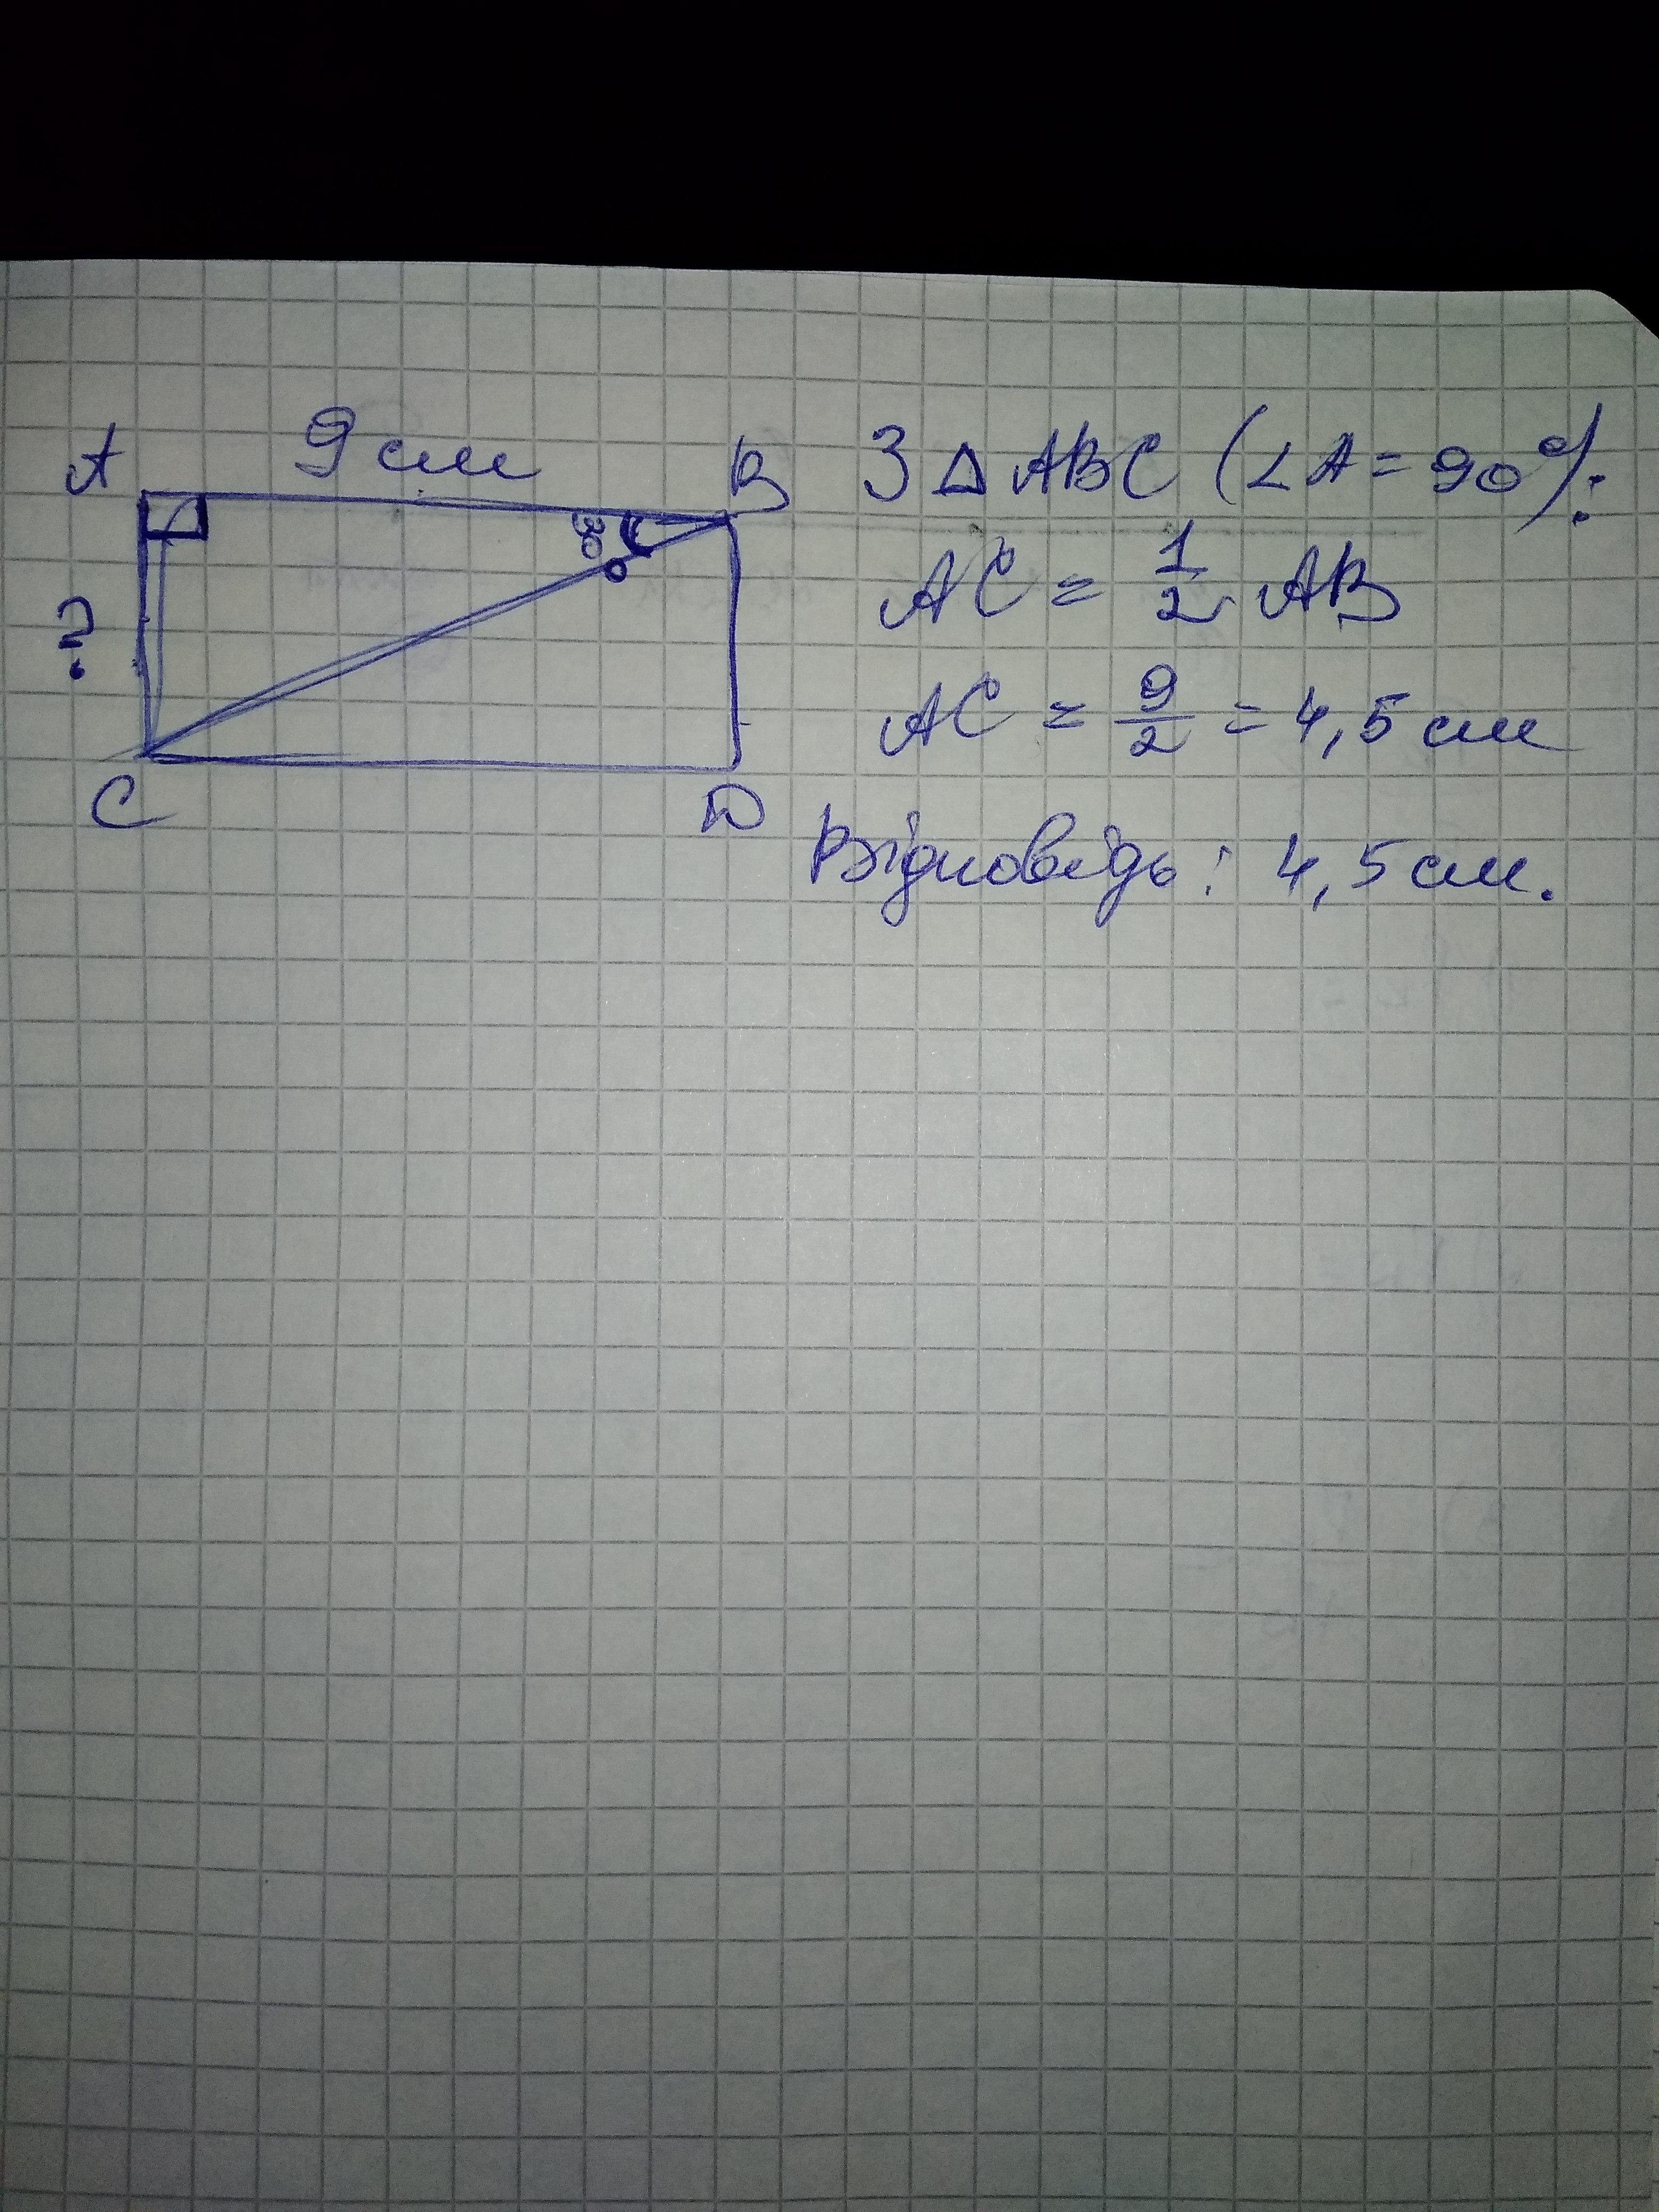 A 9 см B
30°
?
C D
З △ ABC (∠A = 90°):
AC = 1/2 AB
AC = 9/2 = 4,5 см
Відповідь: 4,5 см.